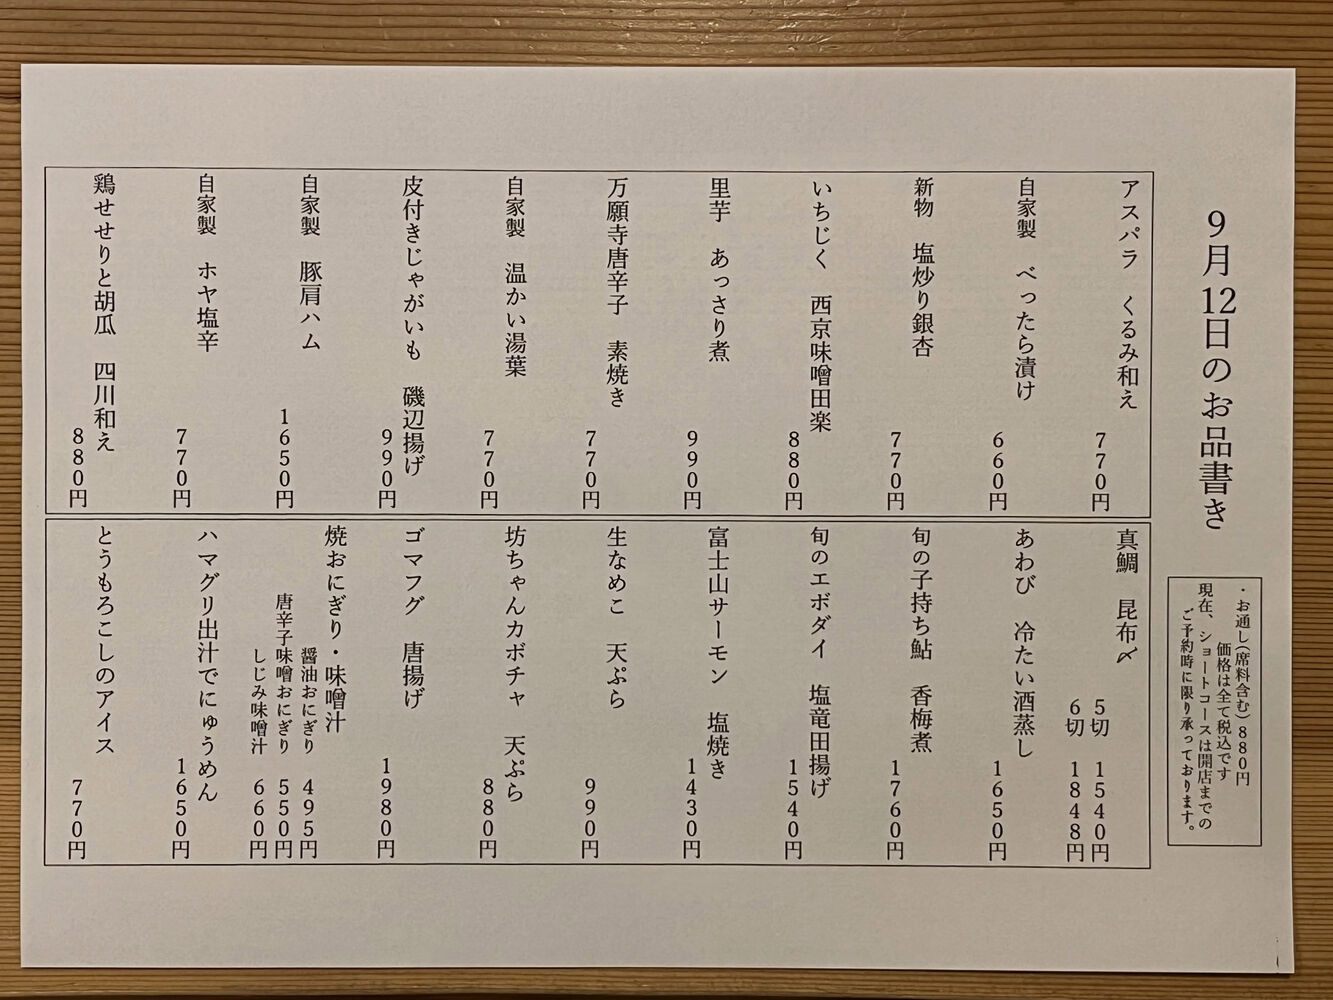 9月12日のお品書き
・お通し(席料含む)880円
価格は全て税込です
現在、ショートコースは開店までの
ご予約時に限り承っております。
アスパラ　くるみ和え
770円
自家製　べったら漬け
660円
新物　塩炒り銀杏
770円
いちじく　西京味噌田楽
880円
里芋　あっさり煮
990円
万願寺唐辛子　素焼き
770円
自家製　温かい湯葉
770円
皮付きじゃがいも　磯辺揚げ
990円
自家製　豚肩ハム
1650円
自家製　ホヤ塩辛
770円
鶏せせりと胡瓜　四川和え
880円
真鯛　昆布〆
5切　1540円
6切　1848円
あわび　冷たい酒蒸し
1650円
旬の子持ち鮎　香梅煮
1760円
旬のエボダイ　塩竜田揚げ
1540円
富士山サーモン　塩焼き
1430円
生なめこ　天ぷら
990円
坊ちゃんカボチャ　天ぷら
880円
ゴマフグ　唐揚げ
1980円
焼おにぎり・味噌汁
醤油おにぎり　495円
唐辛子味噌おにぎり　550円
しじみ味噌汁　660円
ハマグリ出汁でにゅうめん
1650円
とうもろこしのアイス
770円